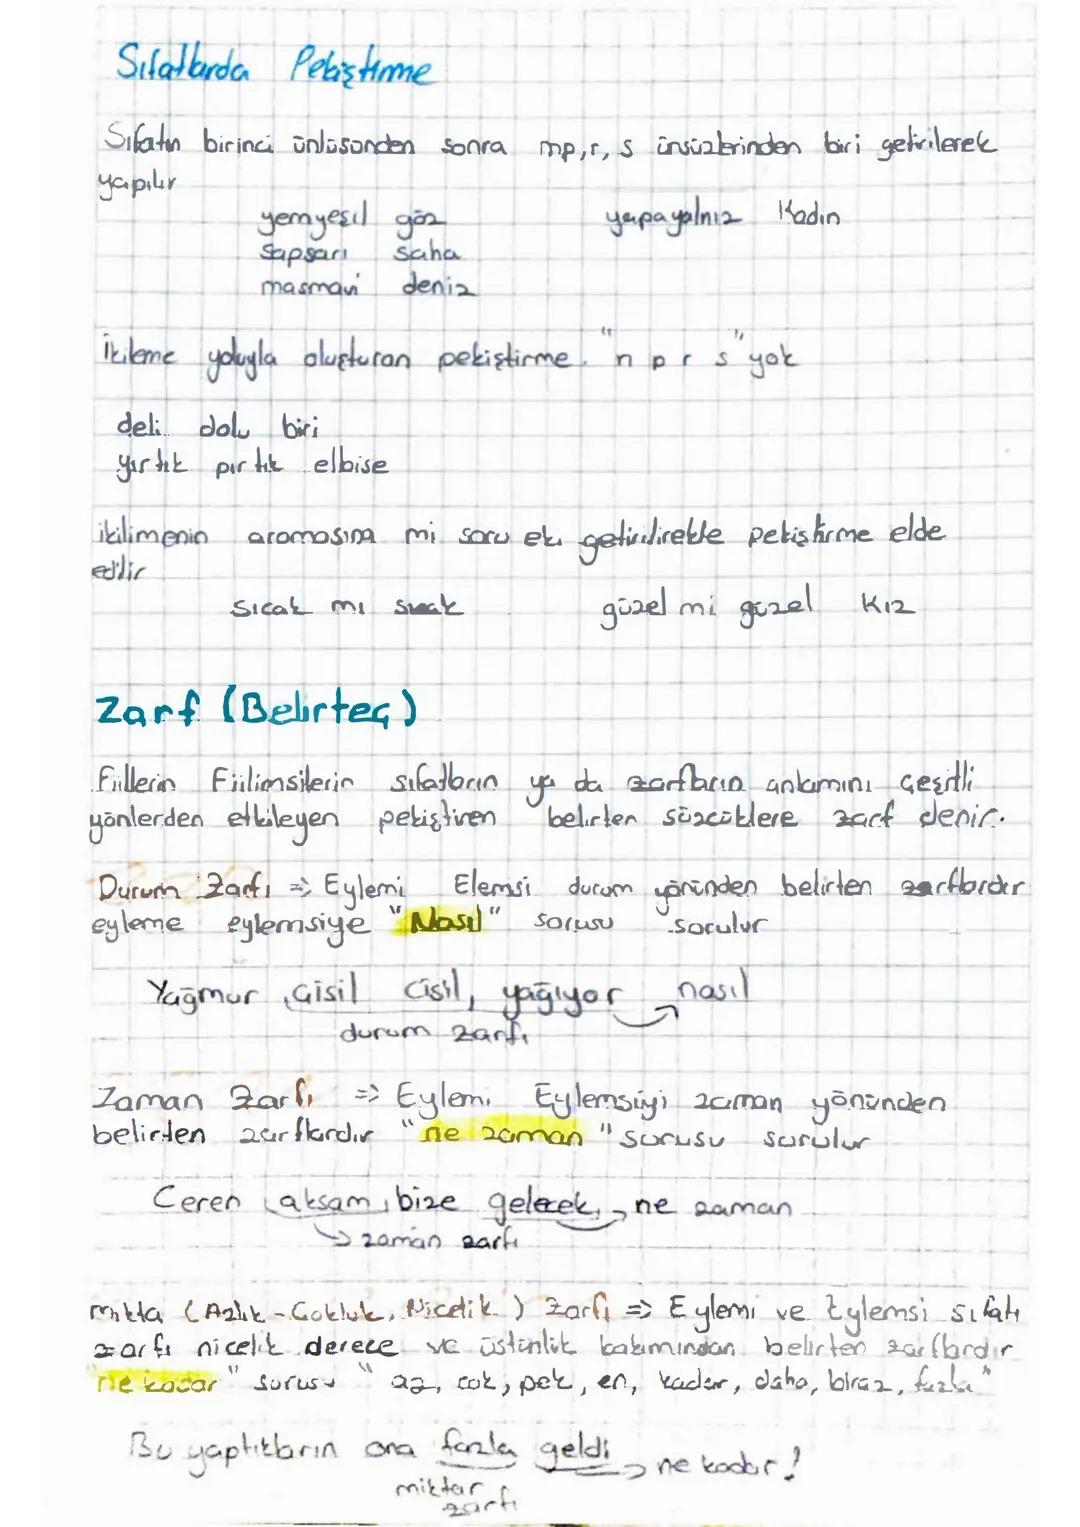 Sıfatlarda Pekiştirme
Sıfatın birinci ünlüsünden sonra mp,r, s ünsüzlerinden biri getirilerek
yapılır
yemyeşil göz yapayalnız Kadın
Sapsarı saha
masmavi deniz
İkileme yoluyla oluşturan pekiştirme. "n p r s" yok
deli dolu biri
yırtık pırtık elbise
ikilimenin aramasına mi soru eki getirilirekte pekiştirme elde
edilir
sıcak mı sıcak güzel mi güzel Kız
Zarf (Belirteç)
Fiillerin Fiilimsilerin sıfatların ya da zarfların anlamını çeşitli
yönlerden etkileyen pekiştiren belirten sözcüklere zarf denir.
Durum Zarfı => Eylemi Elemsi durum yönünden belirten zarflardır
eyleme eylemsiye "Nasıl" sorusu sorulur
Yağmur çisil cisil, yağıyor nasıl
durum zarfı
Zaman Zarfı => Eylemi Eylemsiyi zaman yönünden
belirten zarflardır "ne zaman" sorusu sorulur
Ceren aksam, bize gelecek, ne zaman
zaman zarfı
mikta (Azlık-Çokluk, Nicelik) Zarfı => Eylemi ve Eylemsi sıfatı
zarfı nicelik derece ve üstünlük bakımından belirten zarflardır
"ne kadar" sorusu "az, cok, pek, en, kadar, daha, biraz, fazla"
Bu yaptıkların ona fazla geldi ne kadar!
miktar
zarfı